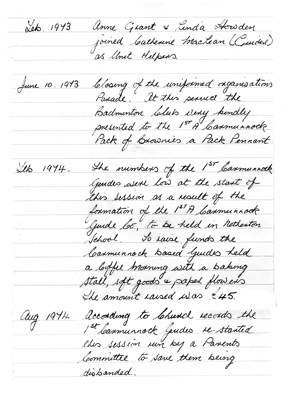 Feb. 1973 Anne Grant & Linda Howden
joined Catherine Maclean (Guider)
as Unit Helpers
June 10. 1973 Closing of the uniformed organisations
Parade. At this service the
Badminton Club very kindly
presented to the 1ST A Carmunnock
Pack of Brownies a Pack Pennant
Feb 1974. The numbers of the 1ST Carmunnock
Guides were low at the start of
this session as a result of the
formation of the 1ST A Carmunnock
Guide Co, to be held in Netherton
School. To raise funds the
Carmunnock based Guides held
a Coffee Morning with a baking
stall, soft goods & paper flowers
The amount raised was £45.
Aug 1974 According to Church records the
1ST Carmunnock Guides re-started
this session run by a Parents
Committee to save them being
disbanded.